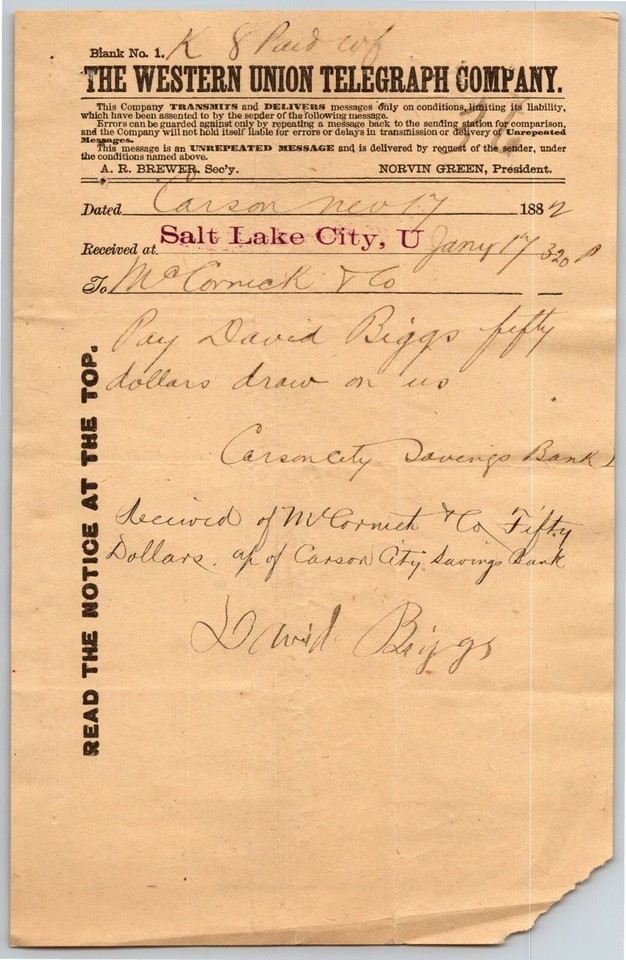 Blank No. 1. K 8 Paid
THE WESTERN UNION TELEGRAPH COMPANY.
This Company TRANSMITS and DELIVERS messages only on conditions, limiting its liability,
which have been assented to by the sender of the following message.
Errors can be guarded against only by repeating a message back to the sending station for comparison,
and the Company will not hold itself liable for errors or delays in transmission or delivery of Unrepeated
Messages.
This message is an UNREPEATED MESSAGE and is delivered by request of the sender, under
the conditions named above.
A. R. BREWER, Sec'y. NORVIN GREEN, President.
Dated Carson Nev 17 1882
Received at Salt Lake City, U Jany 17 320 P
To McCornick & Co
Pay David Biggs fifty
dollars draw on us
Carson City Savings Bank
Received of McCornick & Co Fifty
Dollars. of Carson City Savings Bank
David Biggs
READ THE NOTICE AT THE TOP.